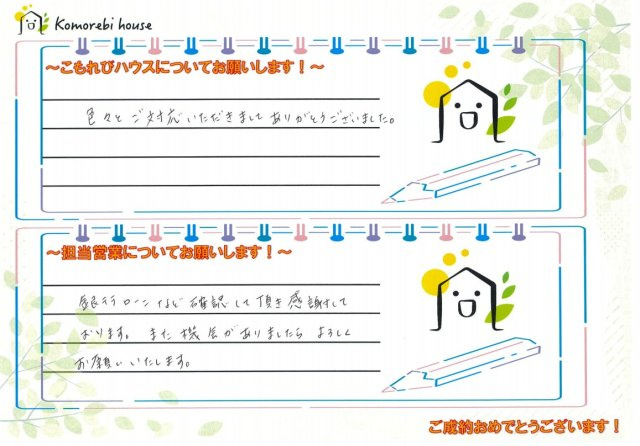 Komorebi house
～こもれびハウスについてお願いします！～
色々とご対応いただきましてありがとうございました。
～担当営業についてお願いします！～
銀行ローンなど確認して頂き感謝して
おります。また機会がありましたらよろしく
お願いいたします。
ご成約おめでとうございます！